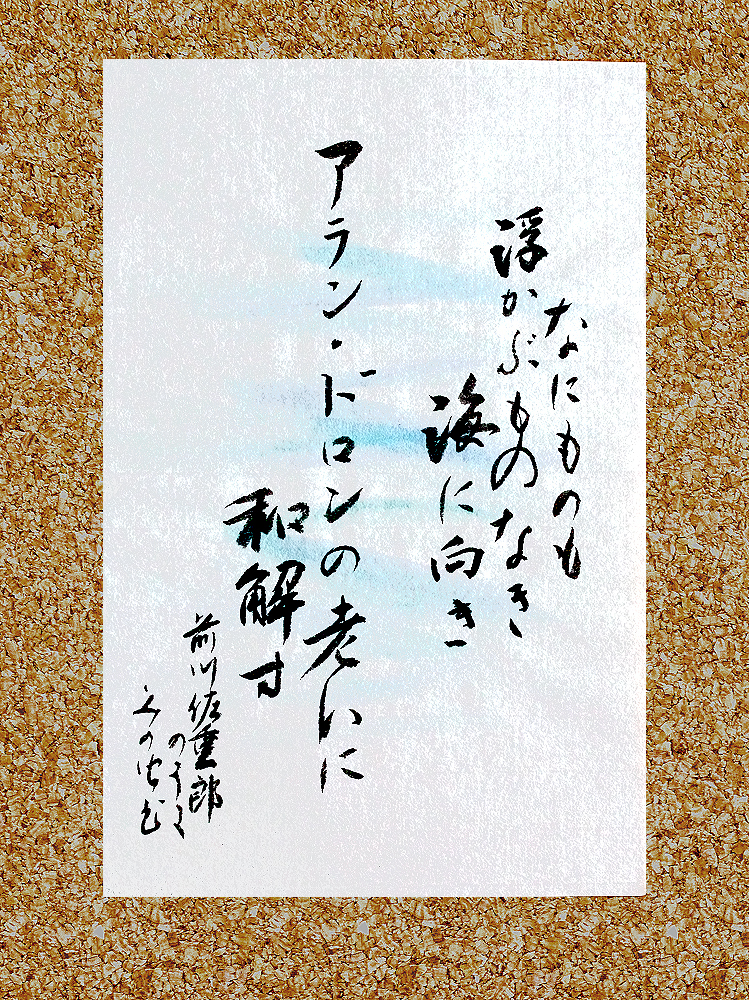 なにものも
浮かぶものなき
海に向き
アラン・ドロンの老いに
和解す
前川佐重郎
のうた